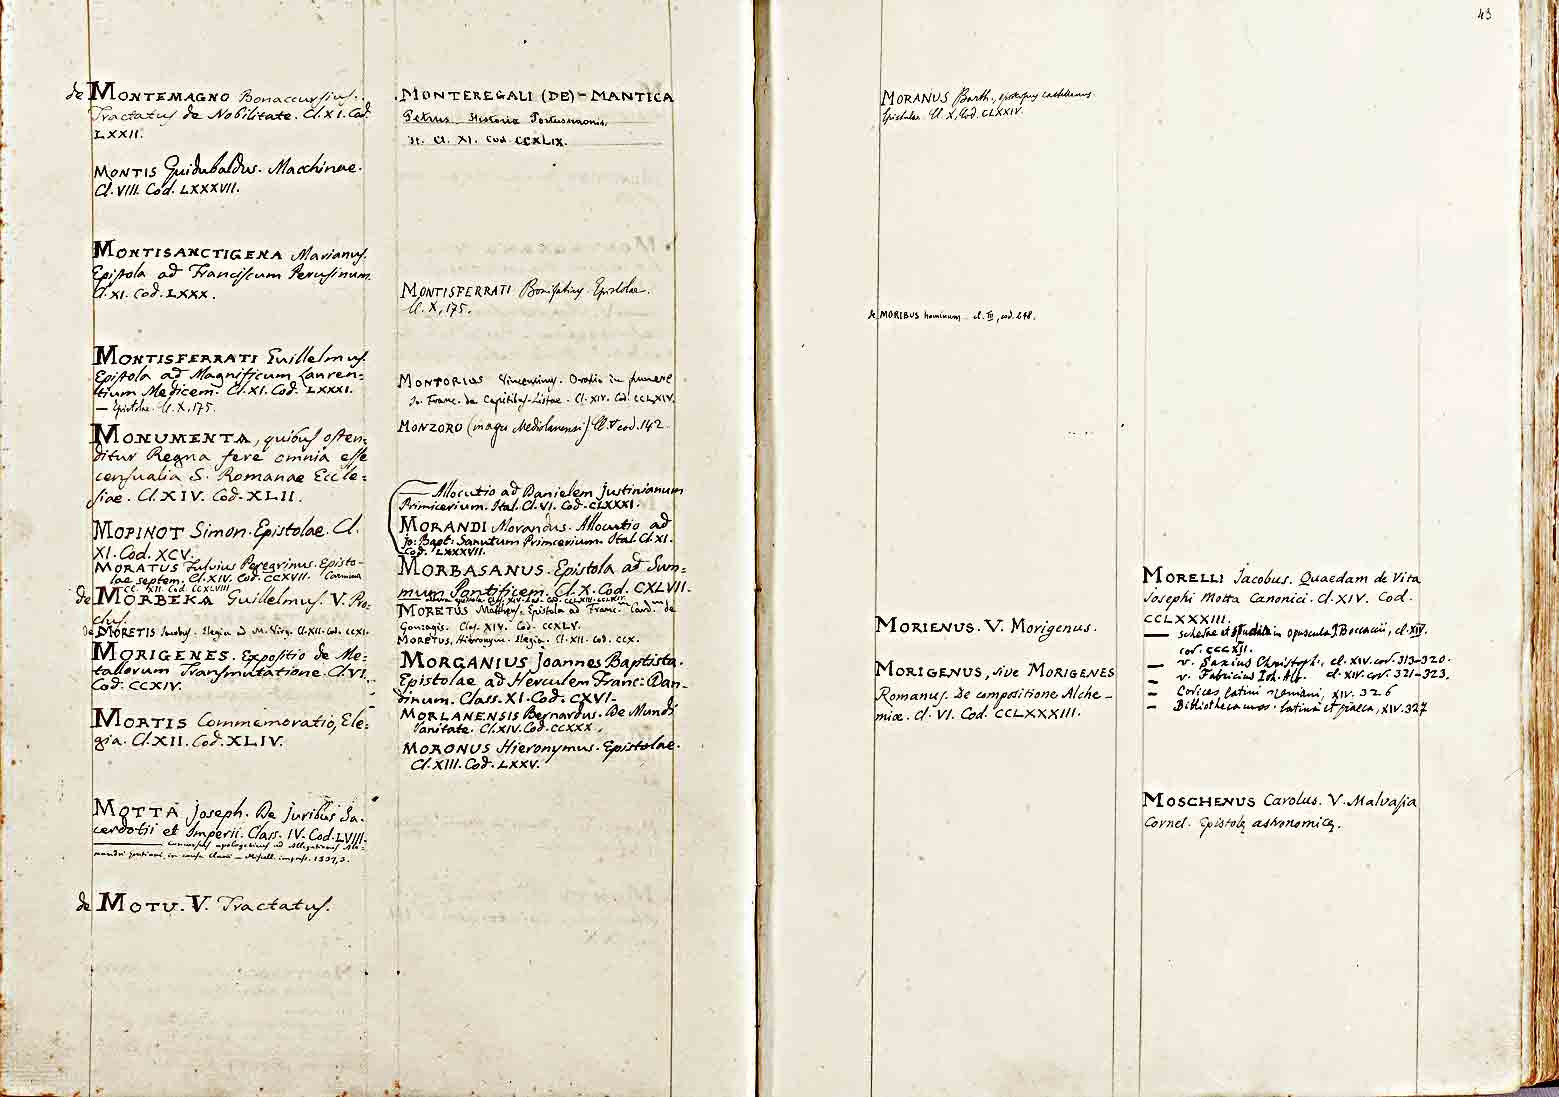 43
de MONTEMAGNO Bonaccursius.
Tractatus de Nobilitate. Cl. XI. Cod.
LXXII.
MONTIS Guidubaldus. Macchinae.
Cl. VIII. Cod. LXXXVII.
MONTISANCTIGENA Marianus.
Epistola ad Franciscum Perusinum
Cl. XI. Cod. LXXX.
MONTISFERRATI Guillelmus.
Epistola ad Magnificum Lauren=
tium Medicem. Cl. XI. Cod. LXXXI.
— Epistolae. Cl. X, 175.
MONUMENTA, quibus osten=
ditur Regna fere omnia esse
censualia S. Romanae Eccle=
siae. Cl. XIV. Cod. XLII.
MOPINOT Simon. Epistolae. Cl.
XI. Cod. XCV.
MORATUS Fulvius Peregrinus. Episto-
lae septem. Cl. XIV. Cod. CCXVII. Carmina
Cl. XII. Cod. CCXLVIII
de MORBEKA Guillelmus. V. Pro=
clus.
de MORETIS Jacobus. Elegia ad M. Virg. Cl. XII. Cod. CCXI.
MORIGENES. Expositio de Me=
tallorum Transmutatione. Cl. VI.
Cod. CCXIV.
MORTIS Commemoratio, Ele=
gia. Cl. XII. Cod. XLIV.
MOTTA Joseph. De Juribus Sa=
cerdotii et Imperii. Class. IV. Cod. LVIII.
de MOTU. V. Tractatus.
MONTEREGALI (DE) - MANTICA
Petrus Historia Portusnaonis.
It. Cl. XI. Cod. CCXLIX.
MONTISFERRATI Bonifatius Epistolae.
Cl. X, 175.
MONTORIUS Vincentinus. Oratio in funere
Jo. Franc. de Capitibus-Listae. Cl. XIV. Cod. CCLXIV.
MONZORO (magr Mediolanensis) Cl. V cod. 142.
— Allocutio ad Danielem Justinianum
Primicerium. Ital. Cl. VI. Cod. CLXXXI.
MORANDI Morandus. Allocutio ad
Jo: Bapt: Sanutum Primicerium. Ital. Cl. XI.
Cod. LXXXVII.
MORBASANUS. Epistola ad Sum=
mum Pontificem. Cl. X. Cod. CXLVII.
MORETUS Matthaeus. Epistola ad Franc.m Card.m de
Gonzagis. Clas. XIV. Cod. CCXLV.
MORETUS, Hieronymus. Elegia. Cl. XII. Cod. CCX.
MORGANIUS Joannes Baptista.
Epistolae ad Herculem Franc: Dan=
dinum. Class. XI. Cod. CXVI.
MORLANENSIS Bernardus. De Mundi
Vanitate. Cl. XIV. Cod. CCXXX.
MORONUS Hieronymus. Epistolae.
Cl. XIII. Cod. LXXV.
MORANUS Barth., episcopus castellanus.
Epistulae. Cl. X, Cod. CLXXIV.
de MORIBUS hominum cl. III, cod. 248.
MORIENUS. V. Morigenus.
MORIGENUS, sive MORIGENES
Romanus. De compositione Alche-
miae. Cl. VI. Cod. CCLXXXIII.
MORELLI Jacobus. Quaedam de Vita
Josephi Motta Canonici. Cl. XIV. Cod.
CCLXXXIII.
— schedae et studia in opuscula J. Boccaccii, cl. XIV.
cod. CCCXII.
— v. Saxius Christoph., cl. XIV. cod. 313-320.
— v. Fabricius Joh. Alb. cl. XIV. cod. 321-323.
— Codices latini Naniani, XIV. 326
— Bibliotheca mss. latina et graeca, XIV. 327
MOSCHENUS Carolus. V. Malvasia
Cornel. Epistolę astronomicę.